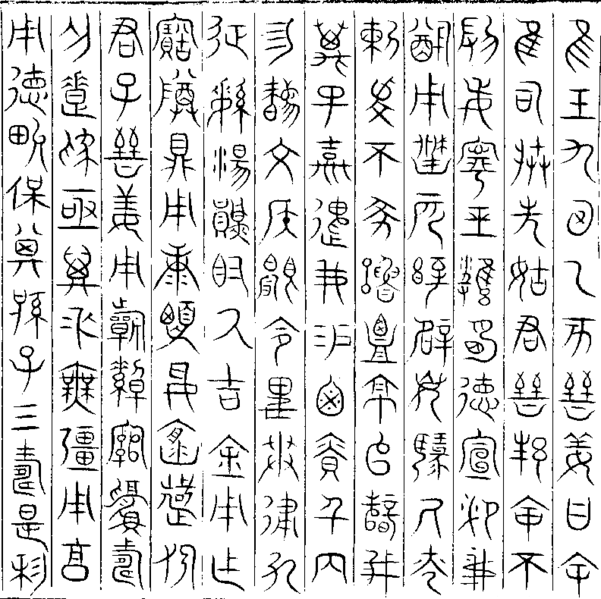 隹王九月乙亥晉姜曰余
隹司朕先姑君晉邦余不
叚妄寧巠雝明德宣卹我
猷用召匹辝辟敏揚氒光
剌虔不㒸魯覃京𠂤辥我
萬民嘉遣我易鹵責千兩
勿灋文侯顯令卑貫通弘
征繁湯𩁹取氒吉金用乍
寶尊鼎用康柔妥懷遠𤞷
君子晉姜用祈綽綰眉壽
乍疐為亟萬年無疆用享
用德畯保其孫子三壽是利